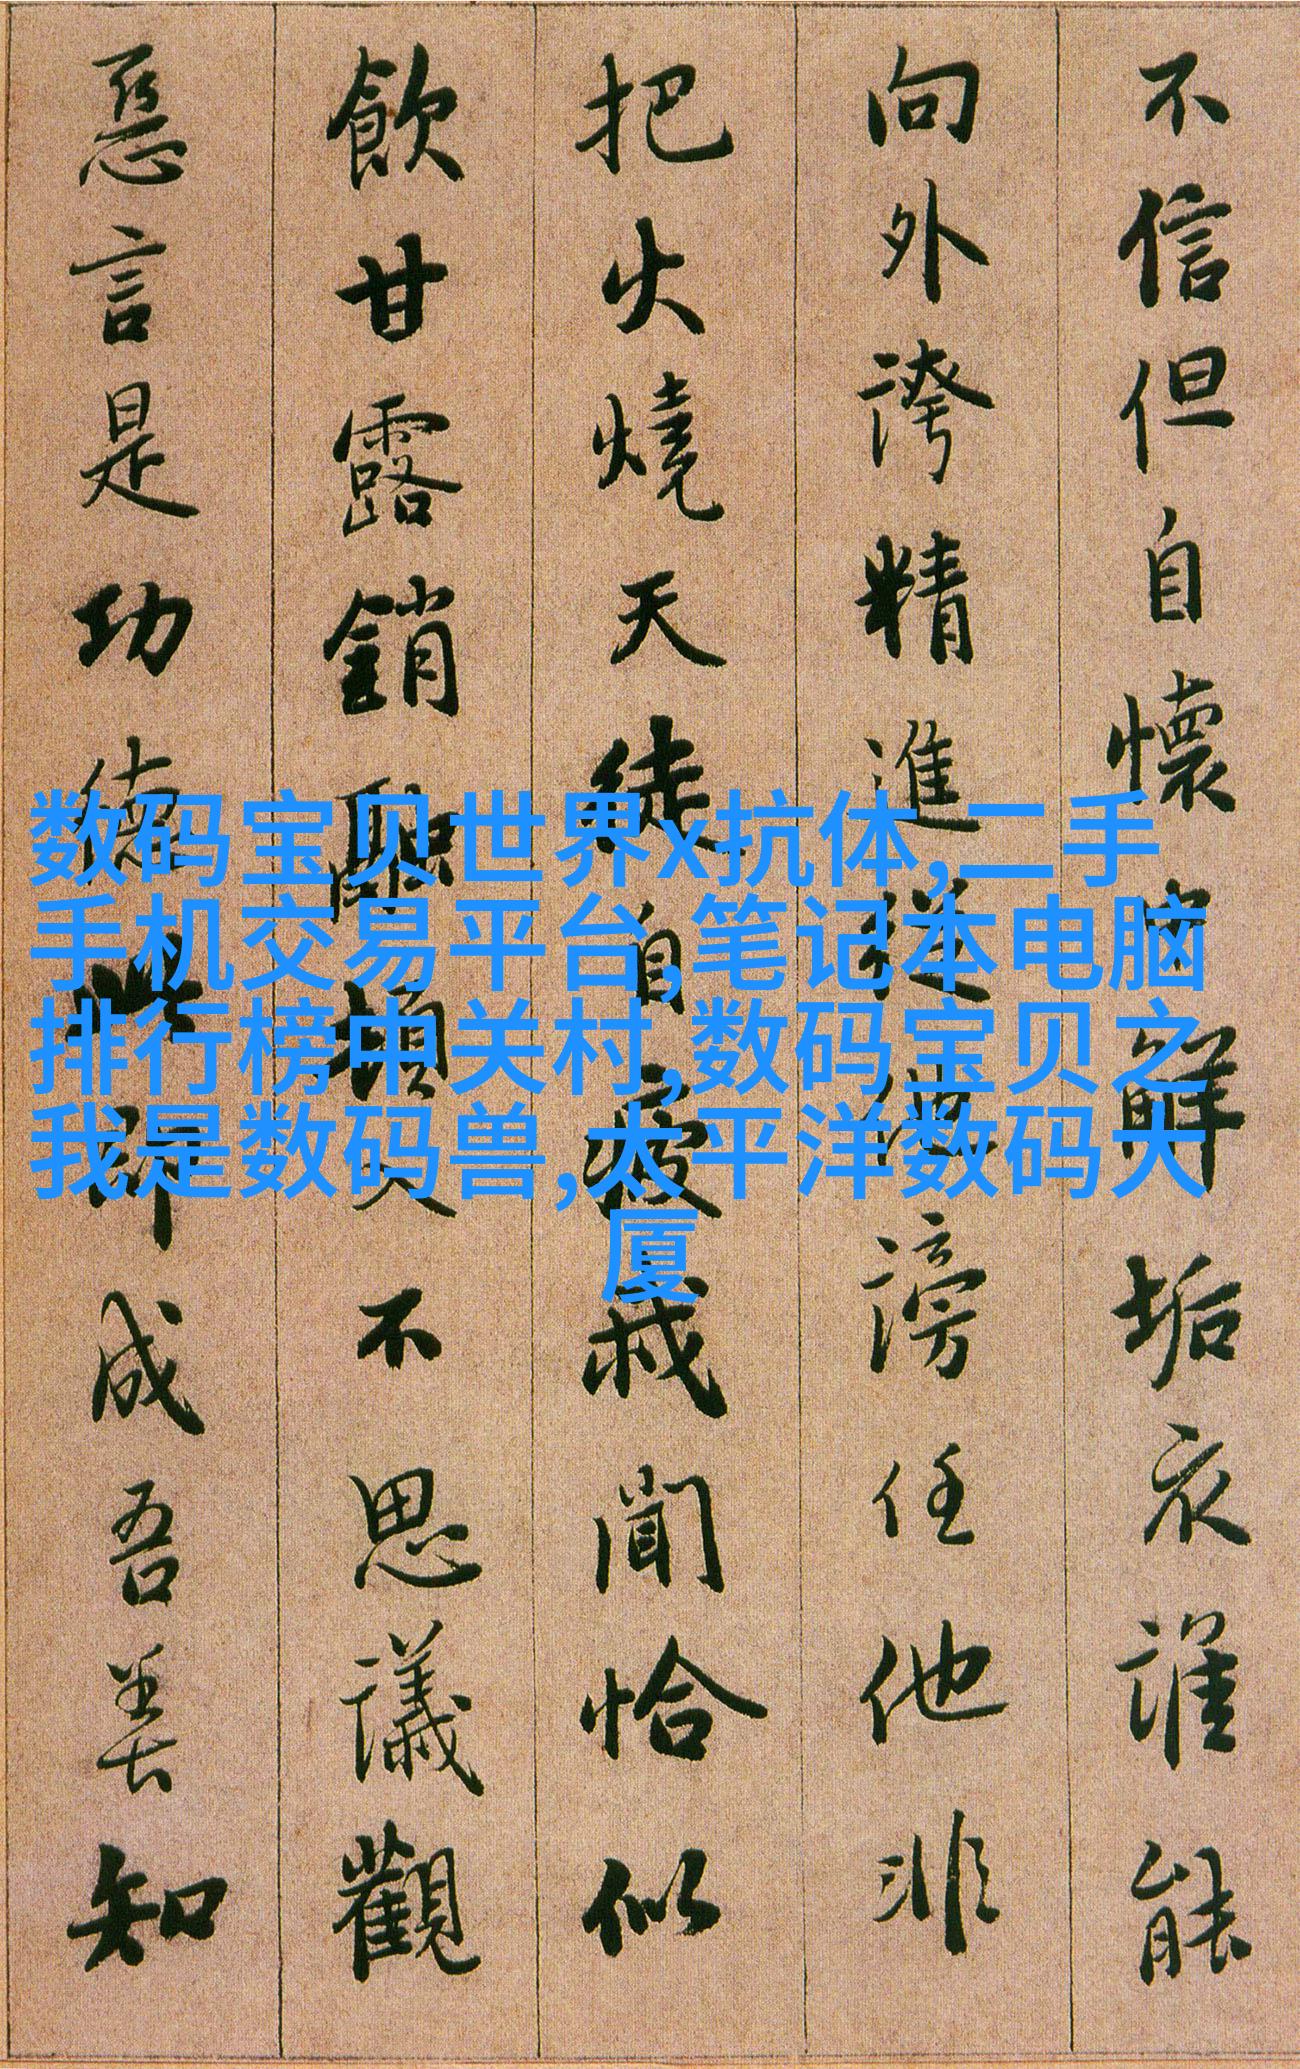 不信但自懷中解垢衣誰能
向外誇精進從他謗任他非
把火燒天徒自疲我聞恰似
飲甘露銷融頓入不思議觀
惡言是功德此即成吾善知
数码宝贝世界x抗体,二手
手机交易平台,笔记本电脑
排行榜中关村,数码宝贝之
我是数码兽,太平洋数码大
厦